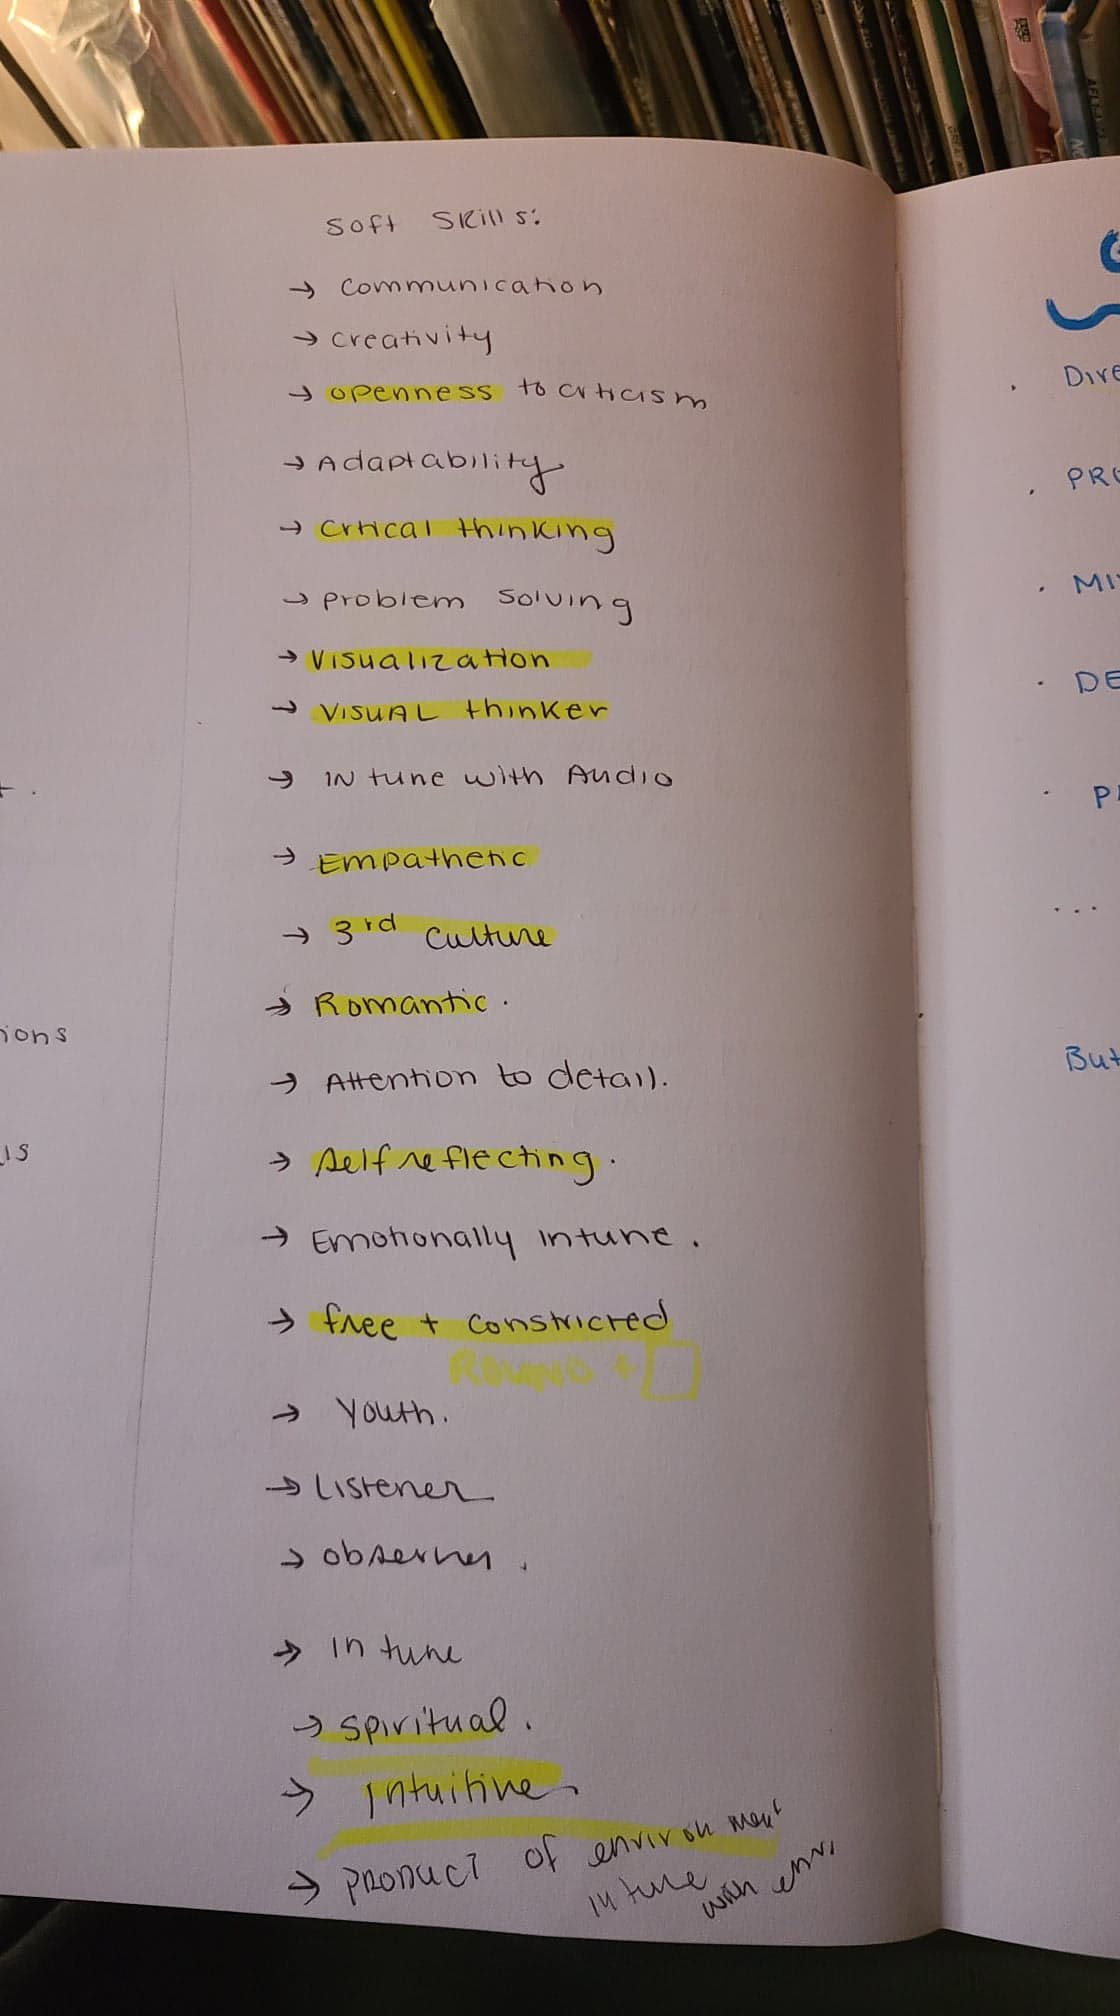 Soft Skills:
→ Communication
→ Creativity
→ openness to criticism
→ Adaptability
→ Critical thinking
→ Problem Solving
→ Visualization
→ VISUAL thinker
→ IN tune with Audio
→ Empathetic
→ 3rd Culture
→ Romantic.
→ Attention to detail.
→ Self reflecting.
→ Emotionally intune.
→ free + constricted
ROUND +
→ Youth.
→ Listener
→ observer.
→ in tune
→ spiritual.
→ Intuitive
→ product of environment
in tune
with envi
ions
Dire
PRO
MI
DE
...
But